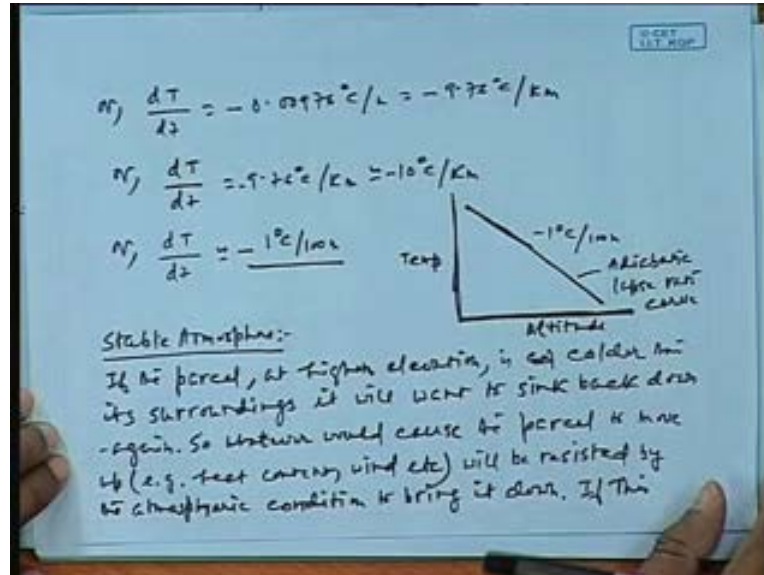 © CET
I.I.T. KGP
or, dT/dz = - 0.00976°C/m = -9.76°C/Km
or, dT/dz = -9.76°C/Km ≃ -10°C/Km
or, dT/dz ≃ - 1°C/100m
Temp
-1°C/100m
Adiabatic
lapse rate
curve
Altitude
Stable Atmosphere:-
If the parcel, at higher elevation, is colder than
its surroundings it will want to sink back down
-again. So whatever would cause the parcel to move
up (e.g. heat content, wind etc) will be resisted by
the atmospheric condition to bring it down. If This